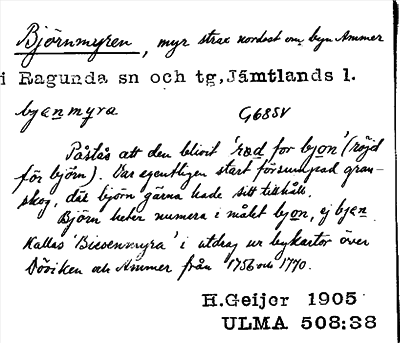 Björnmyren, myr strax nordost om byn Ammer
i Ragunda sn och tg, Jämtlands l.
bjɛnmyra G68SV
Påstås att den blivit 'rød for bjon' (röjd
för björn). Var egentligen starkt försumpad gran-
skog, där björn gärna hade sitt tillhåll.
Björn heter numera i målet bjon, ej bjɛn
Kallas 'Biesenmyra' i utdrag ur bykartor över
Döviken och Ammer från 1756 och 1770.
H.Geijer 1905
ULMA 508:38